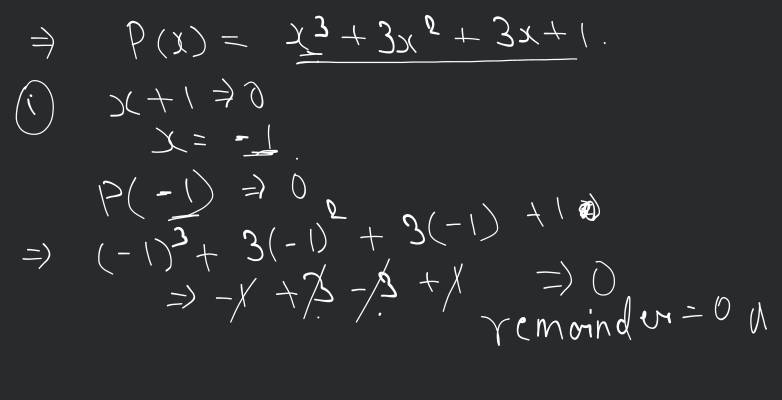 ⇒ P(x) = x³ + 3x² + 3x + 1.
(i) x + 1 ⇒ 0
x = -1.
P(-1) ⇒ 0
⇒ (-1)³ + 3(-1)² + 3(-1) + 1
⇒ -1 + 3 - 3 + 1 ⇒ 0
remainder = 0